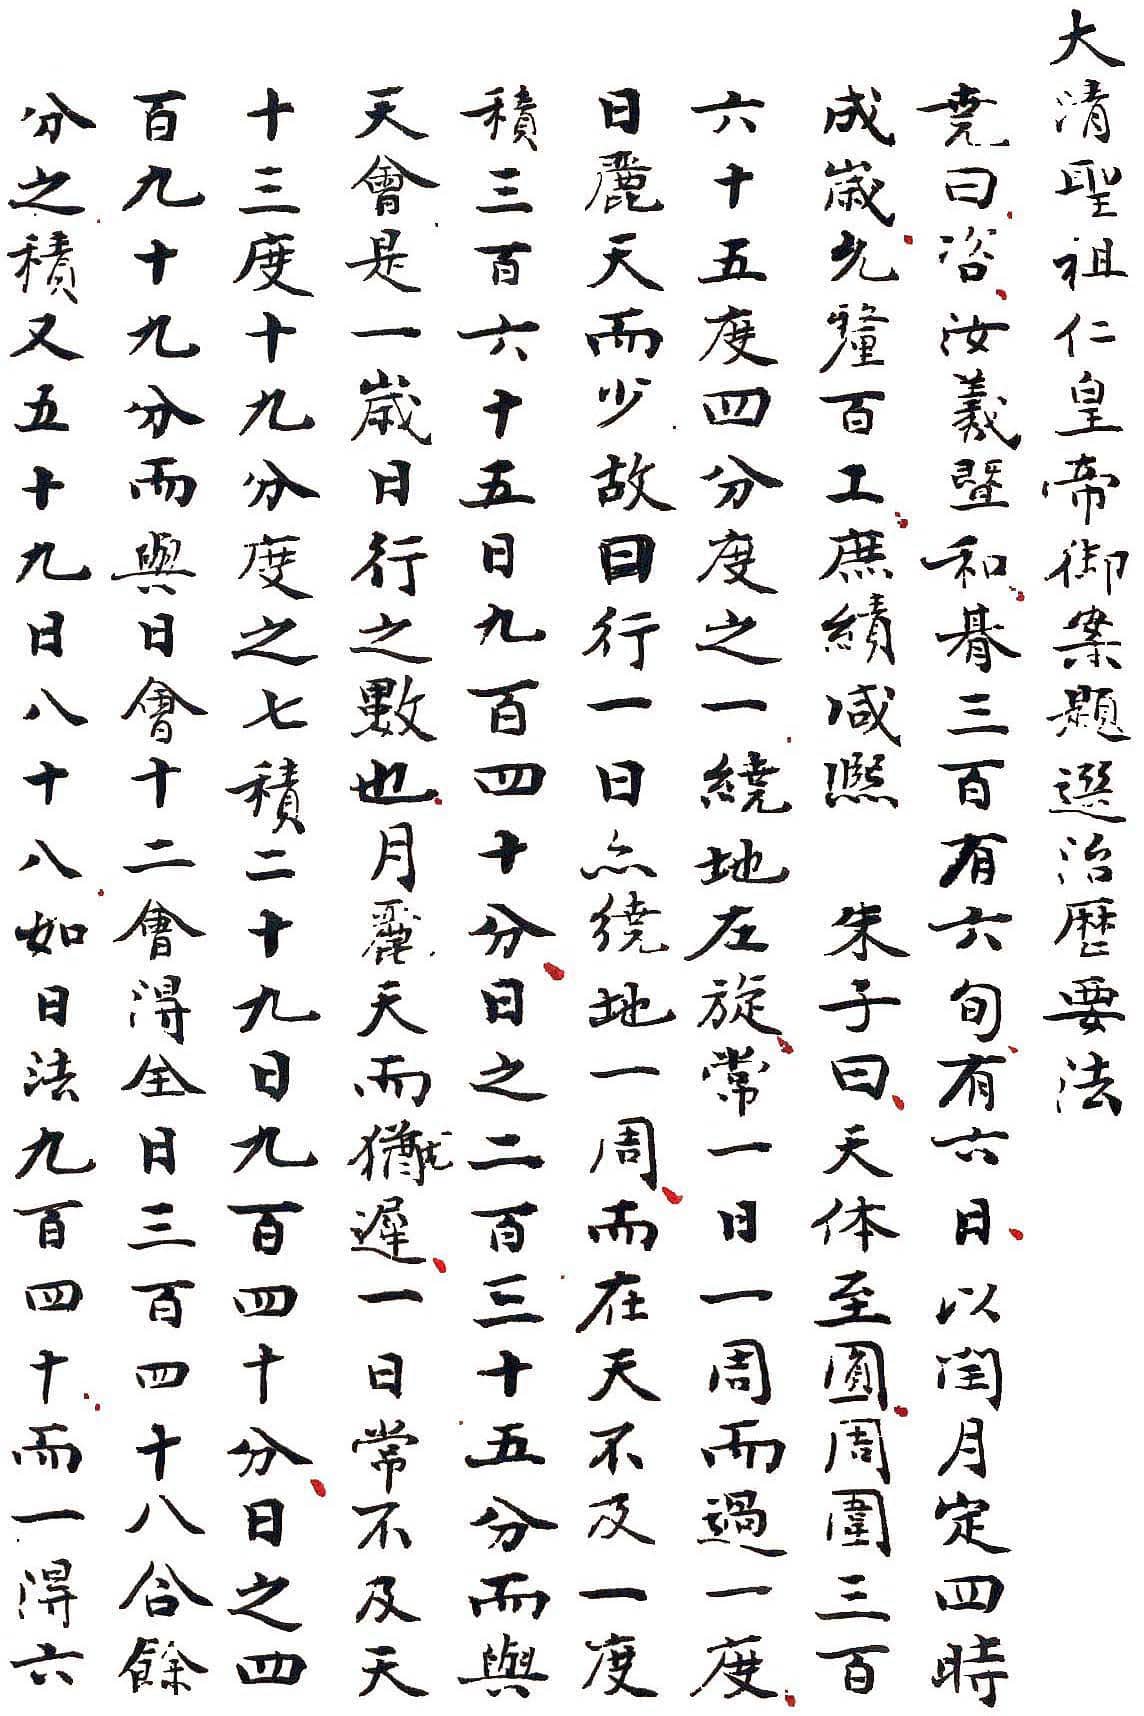 大清聖祖仁皇帝御案題選治曆要法
堯曰咨汝羲暨和朞三百有六旬有六日以閏月定四時
成歲允釐百工庶績咸熙　朱子曰天体至圓周圍三百
六十五度四分度之一繞地左旋常一日一周而過一度
日麗天而少故日行一日亦繞地一周而在天不及一度
積三百六十五日九百四十分日之二百三十五分而與
天會是一歲日行之數也月麗天而猶尤遲一日常不及天
十三度十九分度之七積二十九日九百四十分日之四
百九十九分而與日會十二會得全日三百四十八合餘
分之積又五十九日八十八如日法九百四十而一得六